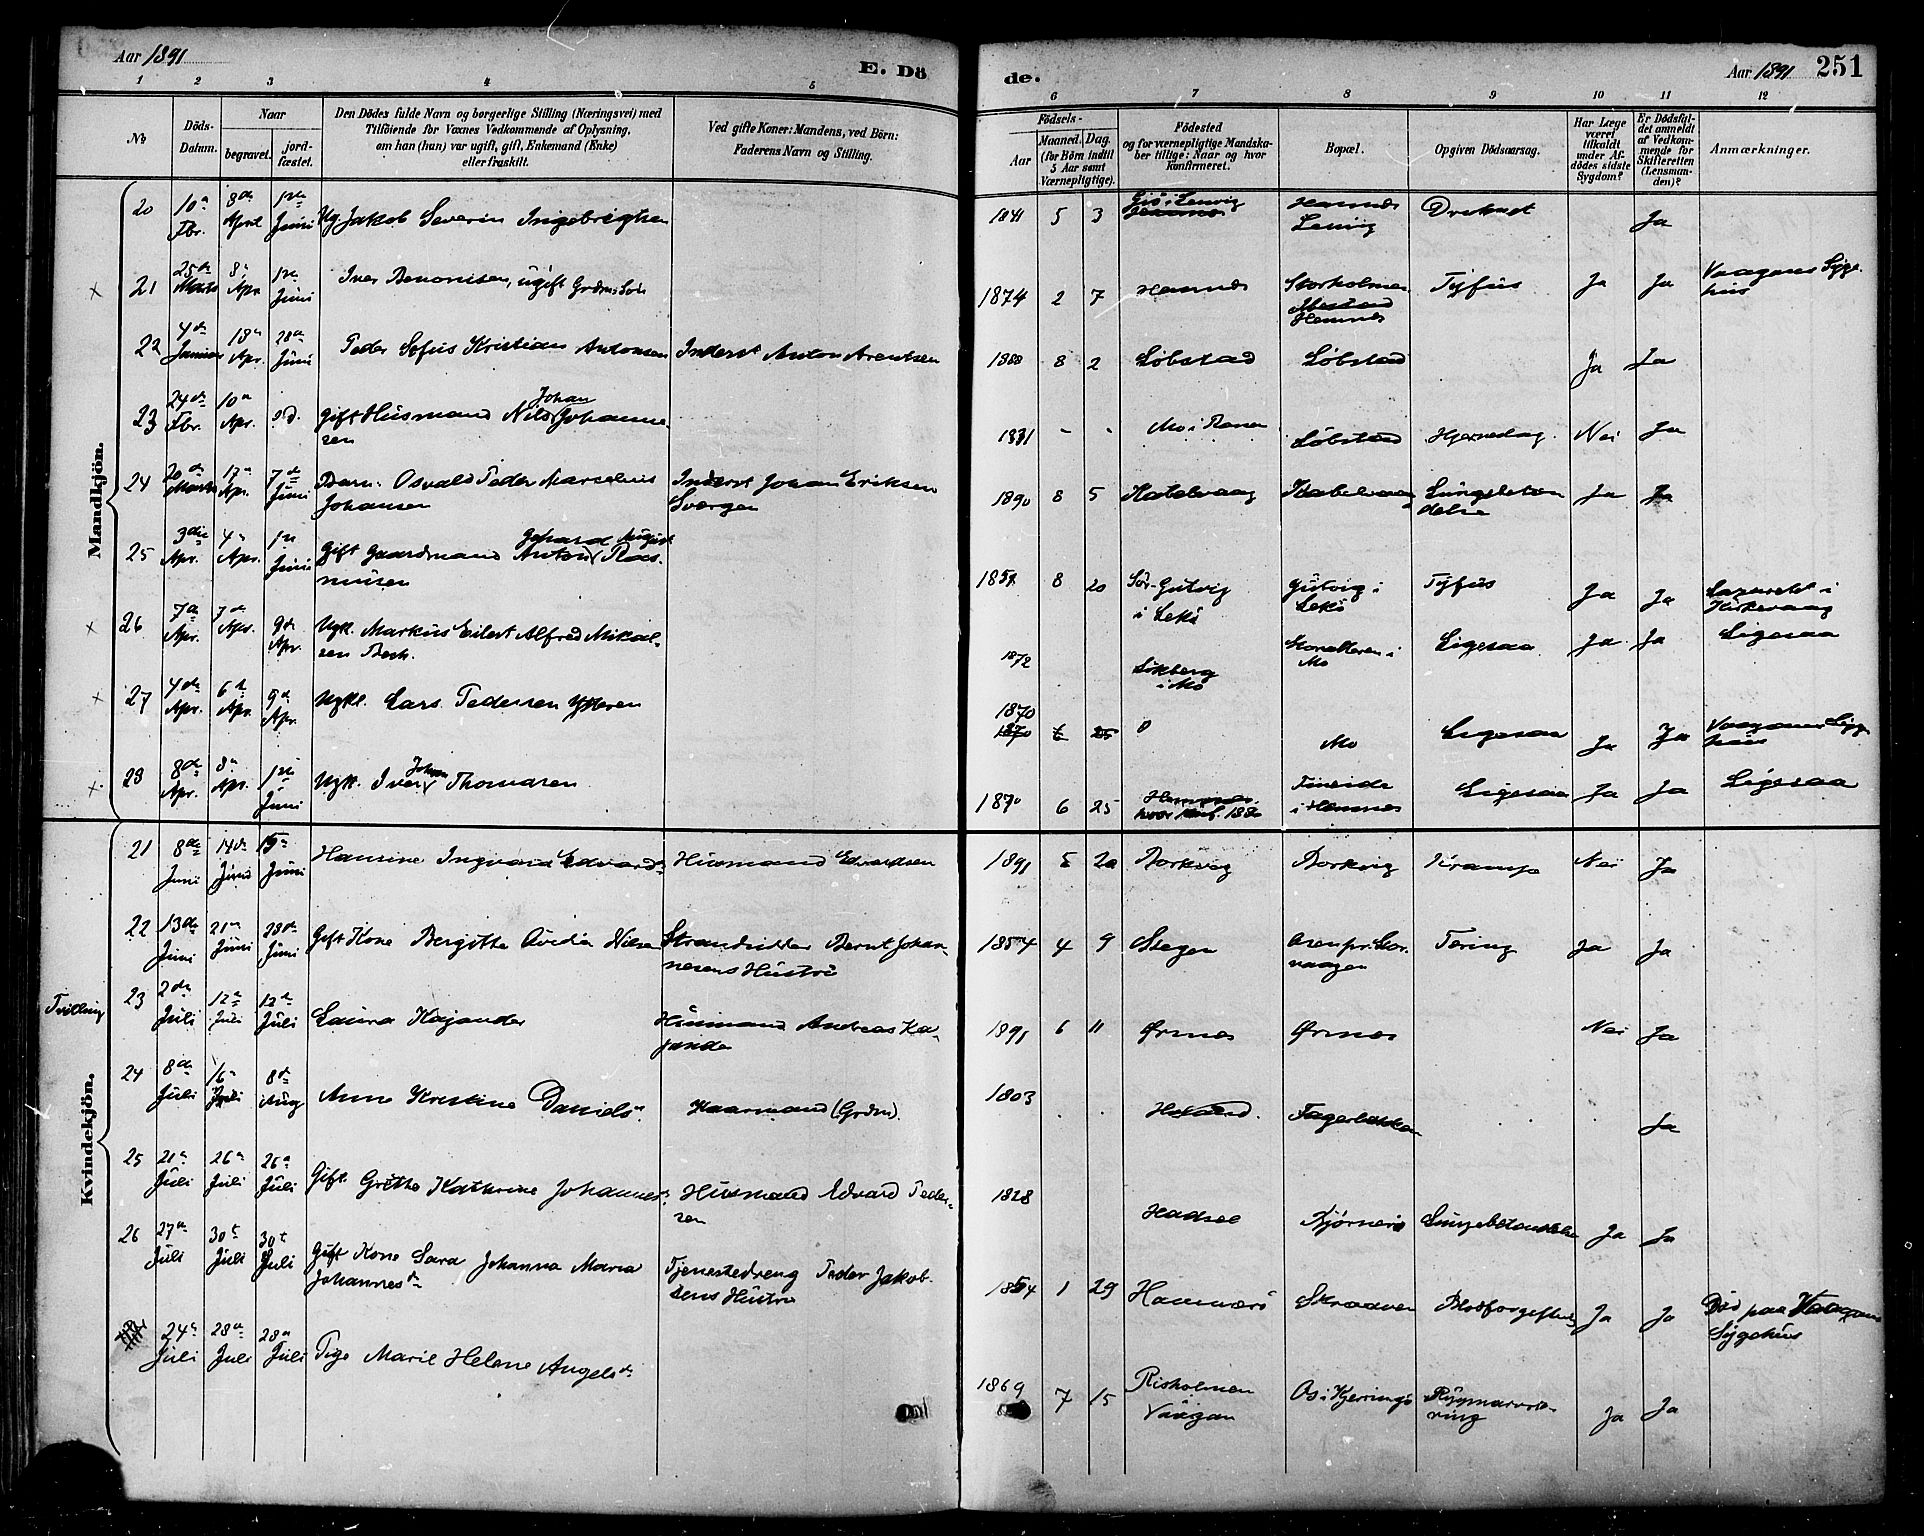 Aar 1891
E. Dö
de.
Aar 1891
251
1 2 3 4 5 6 7 8 9 10 11 12
No
Döds-
Datum.
Naar
begravet.
jord-
fæstet.
Den Dödes fulde Navn og borgerlige Stilling (Næringsvei) med
Tilföiende for Voxnes Vedkommende af Oplysning,
om han (hun) var ugift, gift, Enkemand (Enke)
eller fraskilt.
Ved gifte Koner: Mandens, ved Börn:
Faderens Navn og Stilling.
Födsels-
Aar
Maaned. Dag.
(for Börn indtil
5 Aar samt
Værnepligtige).
Födested
og for værnepligtige Mandska-
ber tillige: Naar og hvor
konfirmeret.
Bopæl.
Opgiven Dödsaarsag.
Har Læge
været
tilkaldt
under Af-
dödes sidste
Sygdom?
Er Dödsfal-
det anmeldt
af Vedkom-
mende for
Skifteretten
(Lensman-
den)?
Anmærkninger.
Mandkjön.
20 10de Fbr. 8de April 1ste Juni Ug. Jakob Severin Ingebrigtsen 1841 5 3 Lenvig Ja
21 25de Marts 8de Apr 1ste Juni Iver Benonisen, ugift 1874 2 7 Hemnes Storholmen Hemnes Tyfus Ja Ja Vaagenes Syge-
hus
22 4de Januar 18de Apr. 28de Juni Peder Sofus Kristian Antonsen Inderst Anton Arentsen 1888 8 2 Løbstad Løbstad Ja Ja
23 24de Fbr. 10de Apr. s.d. Gift Husmand Nils Johan Johanne-
sen 1831 - - Mo i Ranen Løbstad Hjerneslag. Nei Ja
24 20de Marts 17de Apr. 7de Juni Barn: Osvald Peder Marselius
Johansen Inderst Johan Eriksen
Sværgen 1890 8 5 Kabelvaag Kabelvaag Lungebetæn-
delse Ja Ja
25 3die Apr. 4de Apr. 1ste Juni Gift Gaardmand Anton Gerhard August Ras-
musen 1851 8 20 Sør-Gutvig
i Lekø Gutvig i
Lekø Tyfus Ja Ja Lazarettet i
Kirkevaag
26 7de Apr. 7de Apr. 9de Apr. Ugk. Markus Eilert Alfred Mikal-
sen Bech. 1872 i Mo Mo Ligesaa Ja Ja Ligesaa
27 4de Apr. 6te Apr. 9de Apr. Ugkl. Lars Pedersen Ytteren 1870 Mo Ligesaa Ja Ja Vaagenes Syge-
hus
28 8de Apr. 8de Apr. 1ste Juni Ugk. Iver Johan Thomasen 1870 6 25 Hemnes.
hvor konf. 188 Fineide
i Hemnes Ligesaa Ja Ja Ligesaa
Kvindekjön.
21 8de Juni 14de Juni 15de Juni Hansine Ingvarda Edvards. Husmand Edvardsen 1891 5 20 Borkvig Borkvig Krampe Nei Ja
22 13de Juni 21de Juni 28de Juni Gift Kone Bergitte Ovedia Nilsen Strandsidder Bernt Johan-
nesens Hustru 1854 4 9 Stegen Tæring Ja Ja
Tvilling
23 2den Juli 12te Juli 12te Juli Laura Kajander Husmand Andreas Ka-
jander 1891 6 11 Ørnes Ørnes Nei Ja
24 8de Juli 16de Juli 8de Aug Anne Kristine Daniels. Kaarmand (Grdm). 1803 . . Fagerbakken Ja
25 21de Juli 26de Juli 26de Juli Gift. Grethe Kathrine Johannes. Husmand Edvard Peder-
sen 1828 Hadsel Bjørnerø Lungebetændelse Ja Ja
26 27de Juli 30te Juli 30te Juli Gift Kone Sara Johanna Maria
Johannesdr. Tjenestedreng Peder Jakob-
sens Hustru 1854 1 29 Hammerø Skraaven Blodforgiftning Ja Ja Død paa Vaagenes
Sygehus
24de Juli 28de Juli 28de Juli Pige Marie Helene Angelsdr. 1869 7 15 Risholmen
Vaagan Os i Kjerringø Rygmarvstæ-
ring Ja Ja